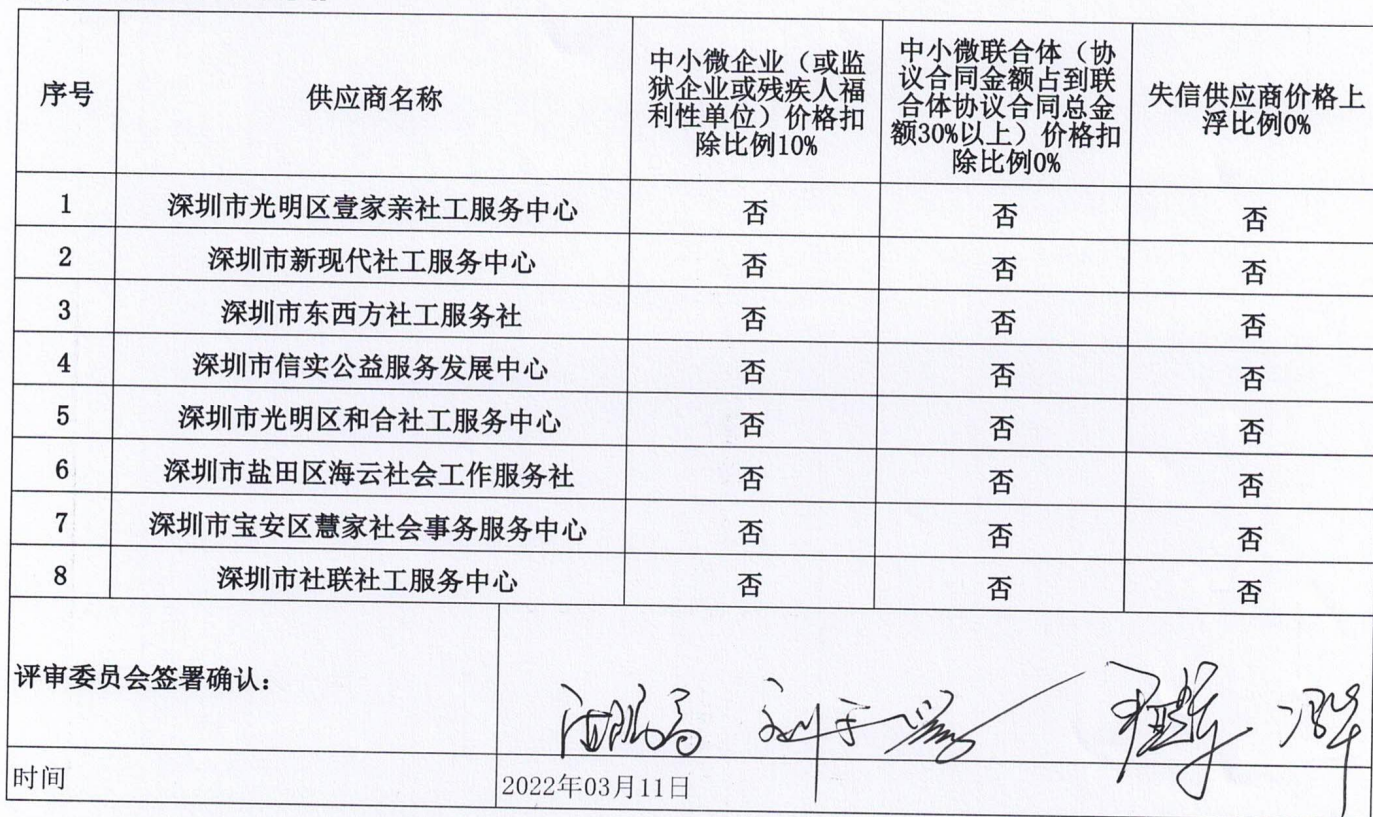 序号
供应商名称
中小微企业（或监
狱企业或残疾人福
利性单位）价格扣
除比例10%
中小微联合体（协
议合同金额占到联
合体协议合同总金
额30%以上）价格扣
除比例0%
失信供应商价格上
浮比例0%
1 深圳市光明区壹家亲社工服务中心 否 否 否
2 深圳市新现代社工服务中心 否 否 否
3 深圳市东西方社工服务社 否 否 否
4 深圳市信实公益服务发展中心 否 否 否
5 深圳市光明区和合社工服务中心 否 否 否
6 深圳市盐田区海云社会工作服务社 否 否 否
7 深圳市宝安区慧家社会事务服务中心 否 否 否
8 深圳市社联社工服务中心 否 否 否
评审委员会签署确认：
时间 2022年03月11日